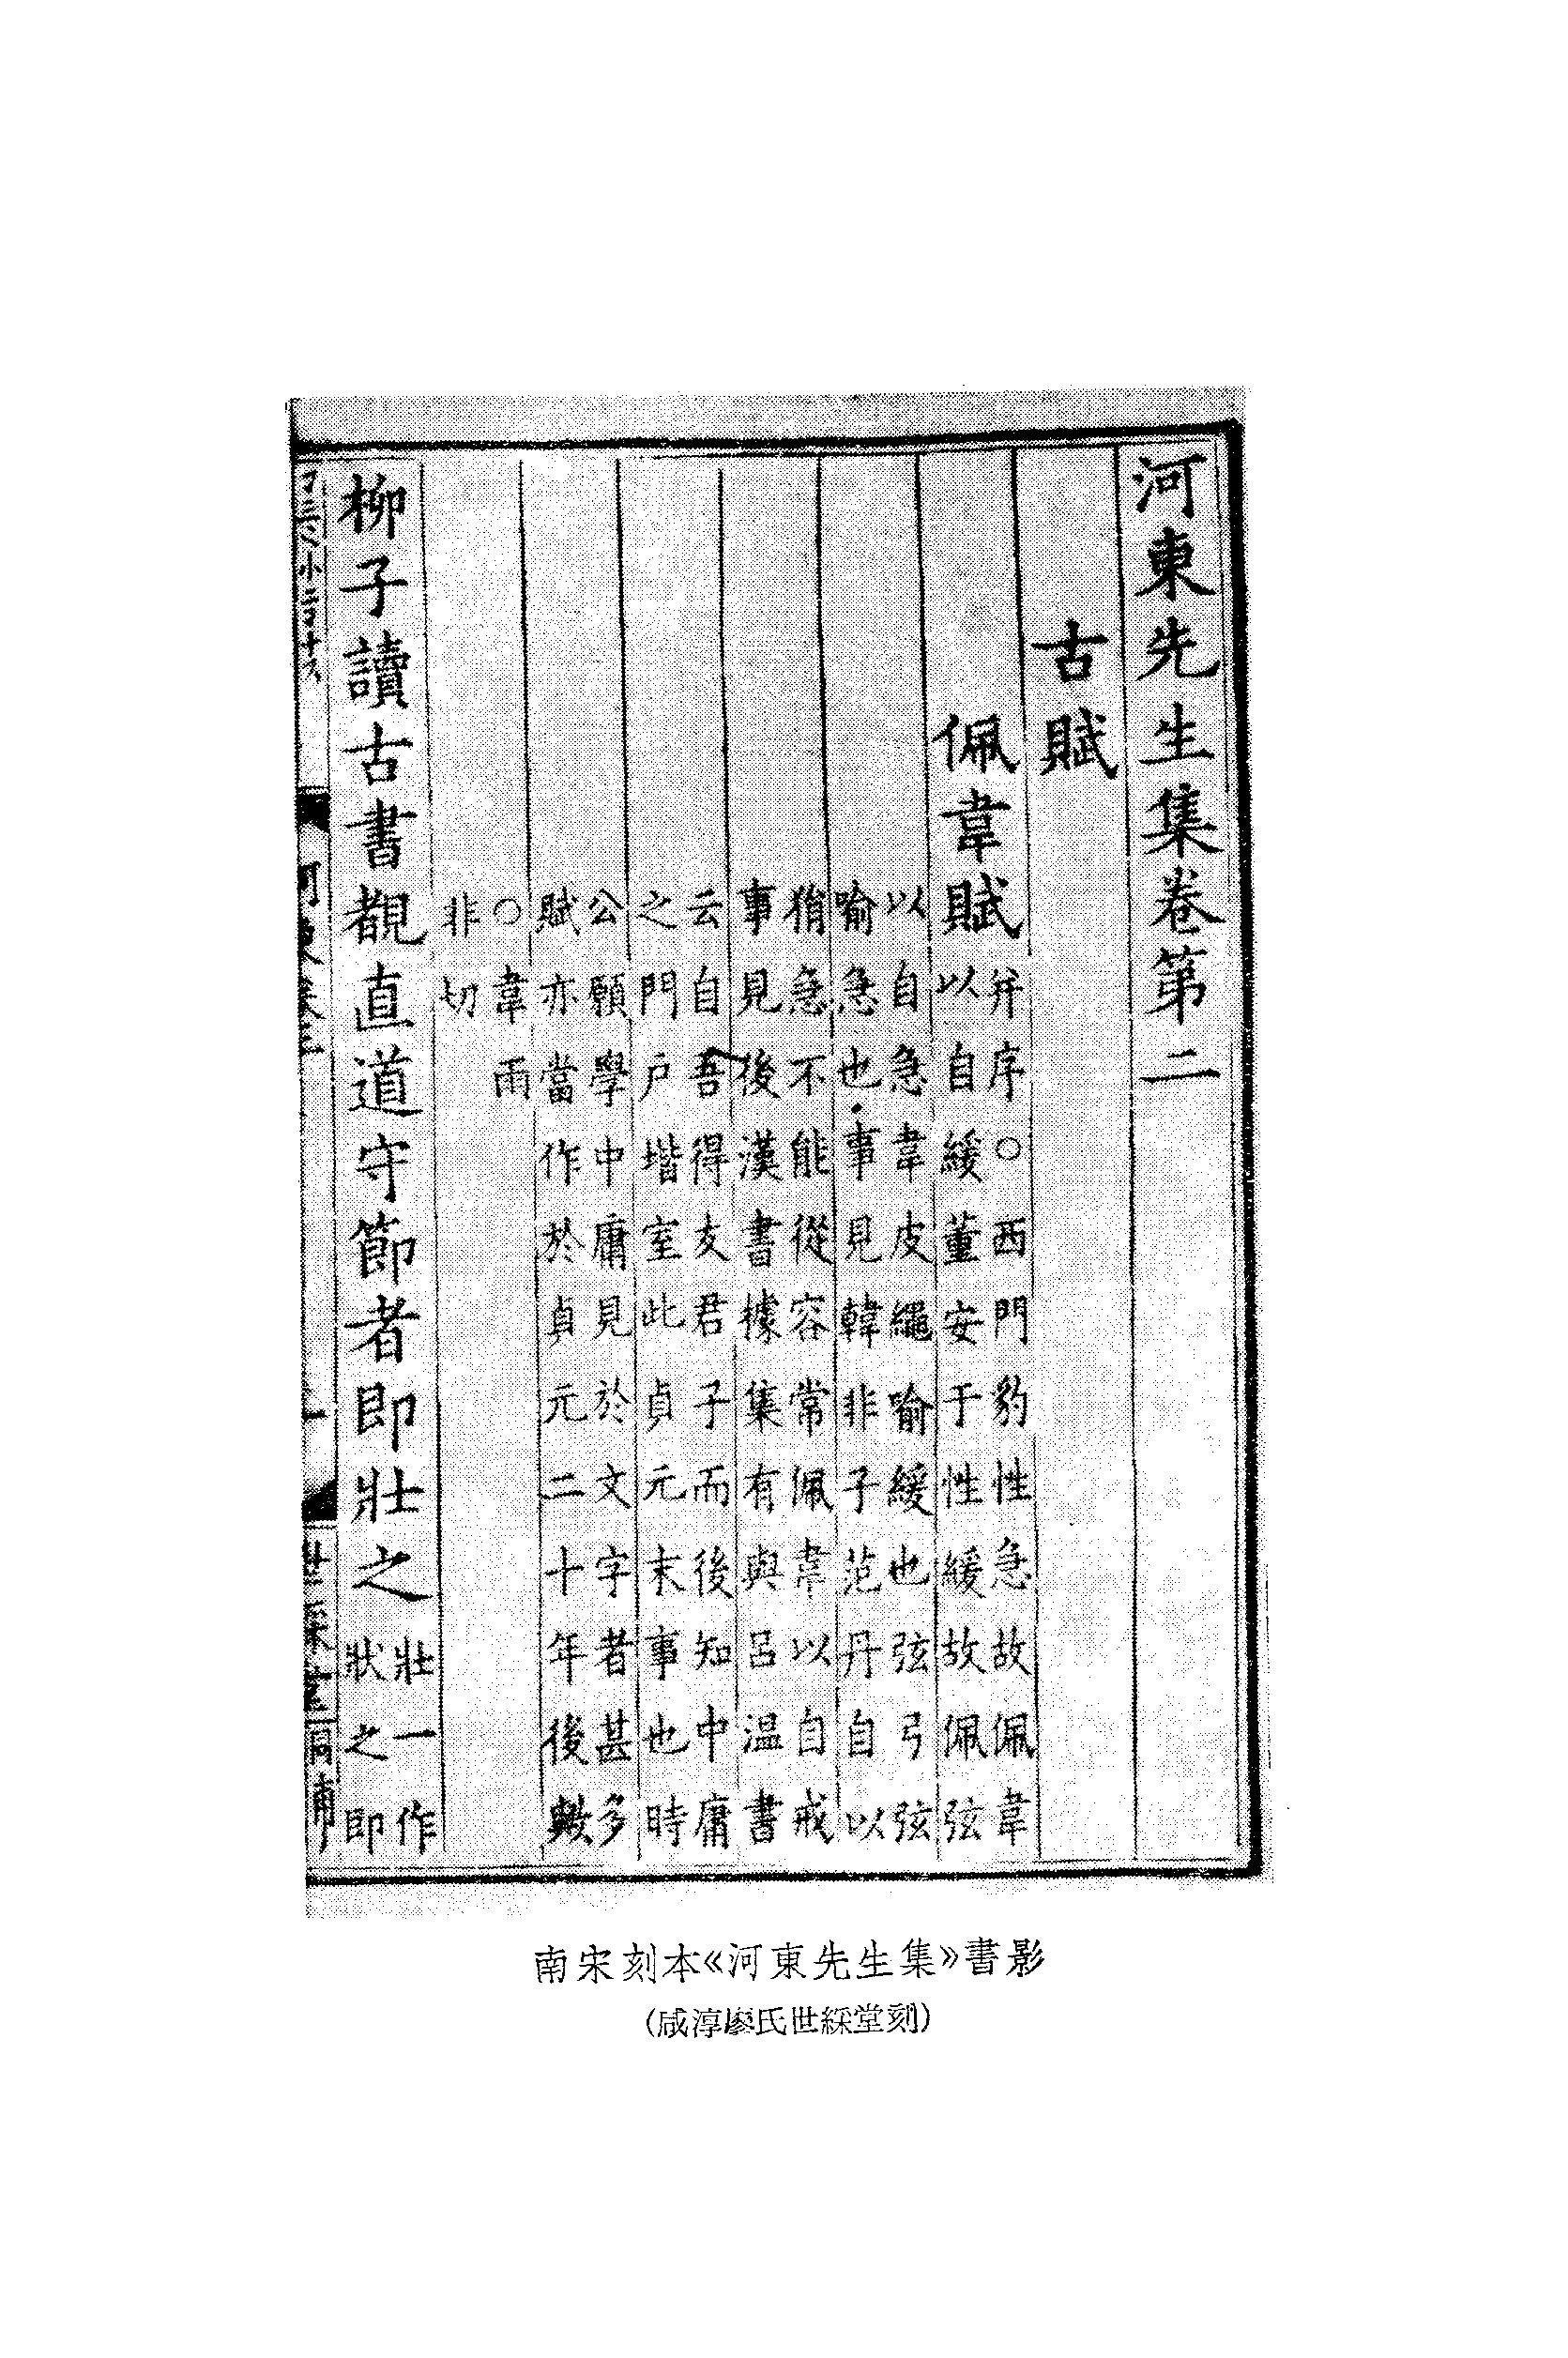 河東先生集卷第二
古賦
佩韋賦
并序○西門豹性急故佩韋
以自緩董安于性緩故佩弦
以自急韋皮繩喻緩也弦弓弦
喻急也事見韓非子范丹自以
狷急不能從容常佩韋以自戒
事見後漢書據集有與呂温書
云自吾得友君子而後知中庸
之門戶堦室此貞元末事也時
公願學中庸見於文字者甚多
賦亦當作於貞元二十年後數
○韋雨
非切
柳子讀古書覩直道守節者即壯之
壯一作
狀之即
河東卷二
世綵堂
南宋刻本《河東先生集》書影
(咸淳廖氏世綵堂刻)